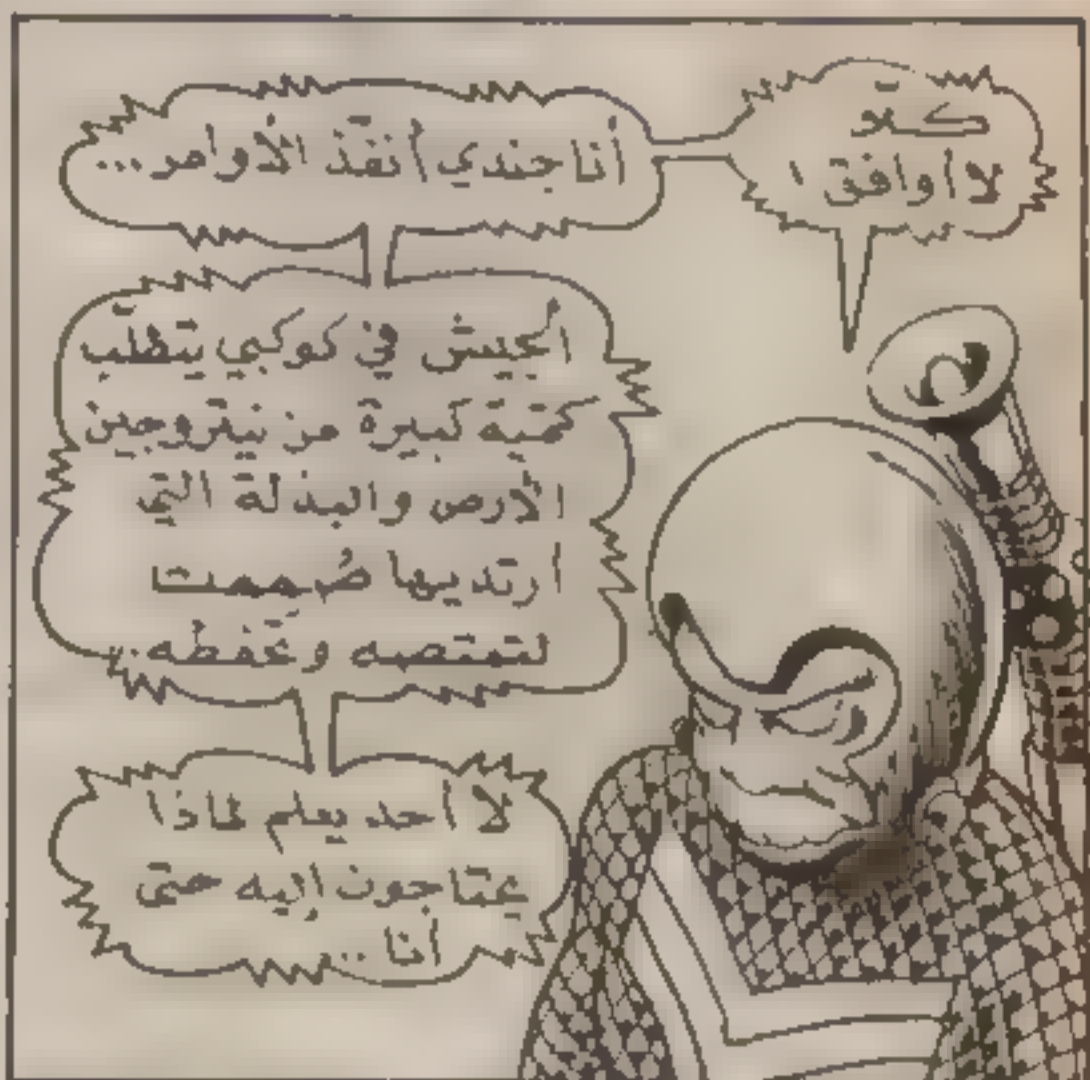 كلّا
لا أوافق !
أنا جندي أنفّذ الأوامر...
الجيش في كوكبي يتطلّب
كميّة كبيرة من نيتروجين
الأرض والبذلة التي
أرتديها صُمِمت
لتمتصه وتحفظه..
لا أحد يعلم لماذا
يحتاجون إليه حتى
أنا...